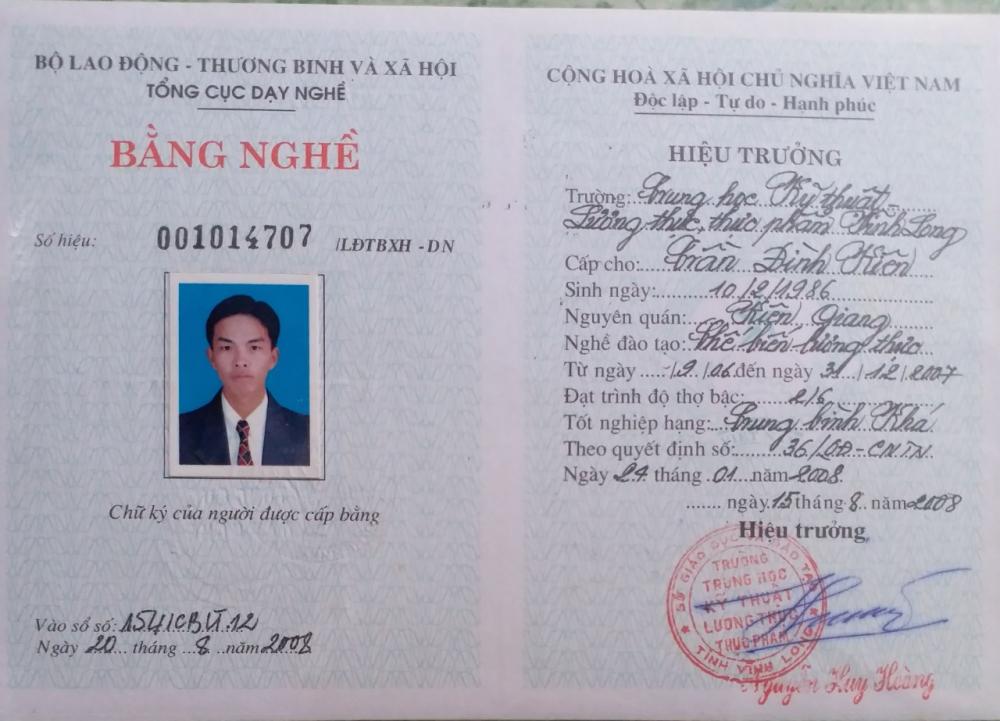 BỘ LAO ĐỘNG - THƯƠNG BINH VÀ XÃ HỘI
TỔNG CỤC DẠY NGHỀ
BẰNG NGHỀ
Số hiệu: 001014707 /LĐTBXH - DN
Chữ ký của người được cấp bằng
Vào sổ số: 154/CBLT 12
Ngày 20 tháng 8 năm 2008
CỘNG HOÀ XÃ HỘI CHỦ NGHĨA VIỆT NAM
Độc lập - Tự do - Hạnh phúc
HIỆU TRƯỞNG
Trường: Trung học Kỹ thuật -
Lương thực, thực phẩm Vĩnh Long
Cấp cho: Trần Đình Kiên
Sinh ngày: 10/2/1986
Nguyên quán: Kiên Giang
Nghề đào tạo: Chế biến lương thực
Từ ngày -/9/06 đến ngày 31/12/2007
Đạt trình độ thợ bậc: 2/6
Tốt nghiệp hạng: Trung bình Khá
Theo quyết định số: 36/QĐ-CNTN
Ngày 24 tháng 01 năm 2008
ngày 15 tháng 8 năm 2008
Hiệu trưởng
SỞ GIÁO DỤC VÀ ĐÀO TẠO
TRƯỜNG
TRUNG HỌC
KỸ THUẬT
LƯƠNG THỰC
THỰC PHẨM
TỈNH VĨNH LONG
Nguyễn Huy Hoàng